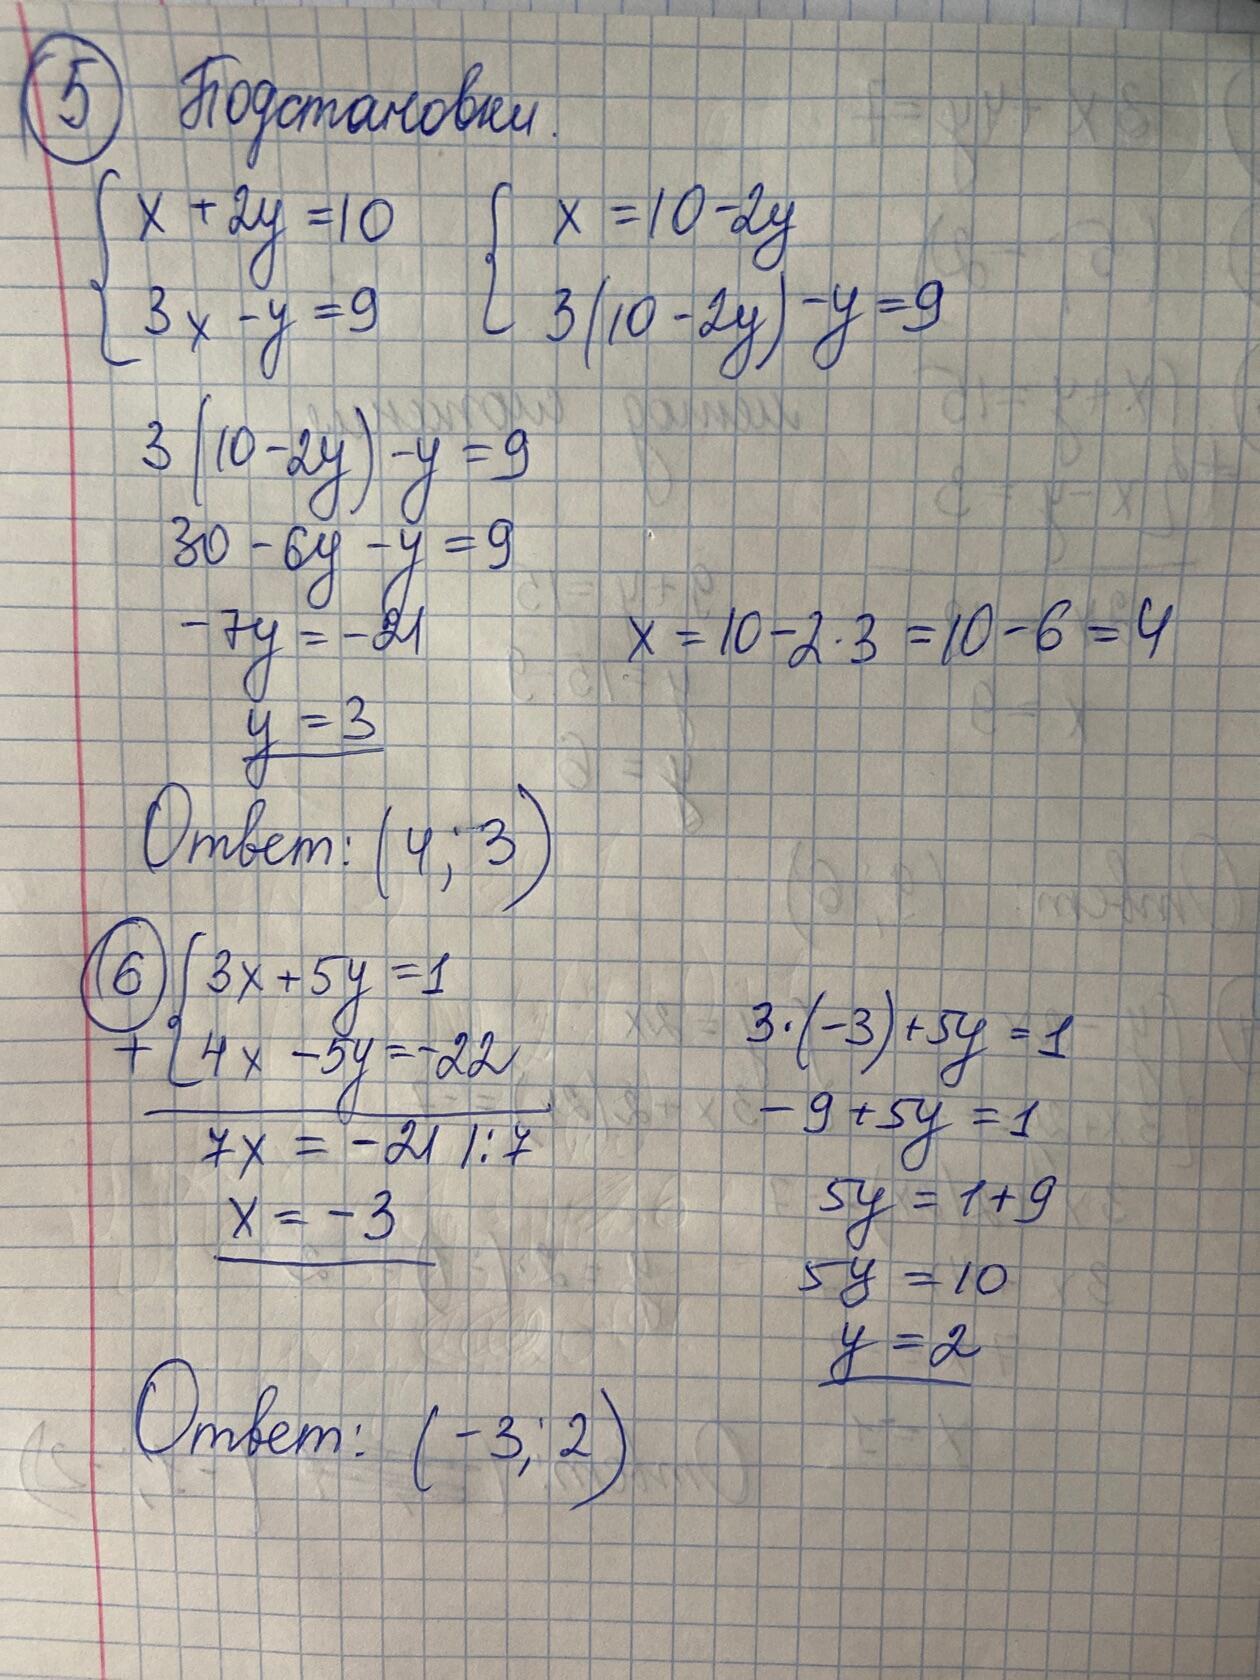 5 Подстановки.
x + 2y = 10
3x - y = 9
x = 10 - 2y
3(10 - 2y) - y = 9
3(10 - 2y) - y = 9
30 - 6y - y = 9
-7y = -21
y = 3
x = 10 - 2·3 = 10 - 6 = 4
Ответ: (4; 3)
6 3x + 5y = 1
+ 4x - 5y = -22
7x = -21 |:7
x = -3
3·(-3) + 5y = 1
-9 + 5y = 1
5y = 1 + 9
5y = 10
y = 2
Ответ: (-3; 2)